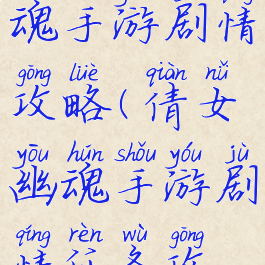 魂手游剧情
gōng lüè qiàn nǚ
攻略(倩女
yōu hún shǒu yóu jù
幽魂手游剧
qíng rèn wù gōng